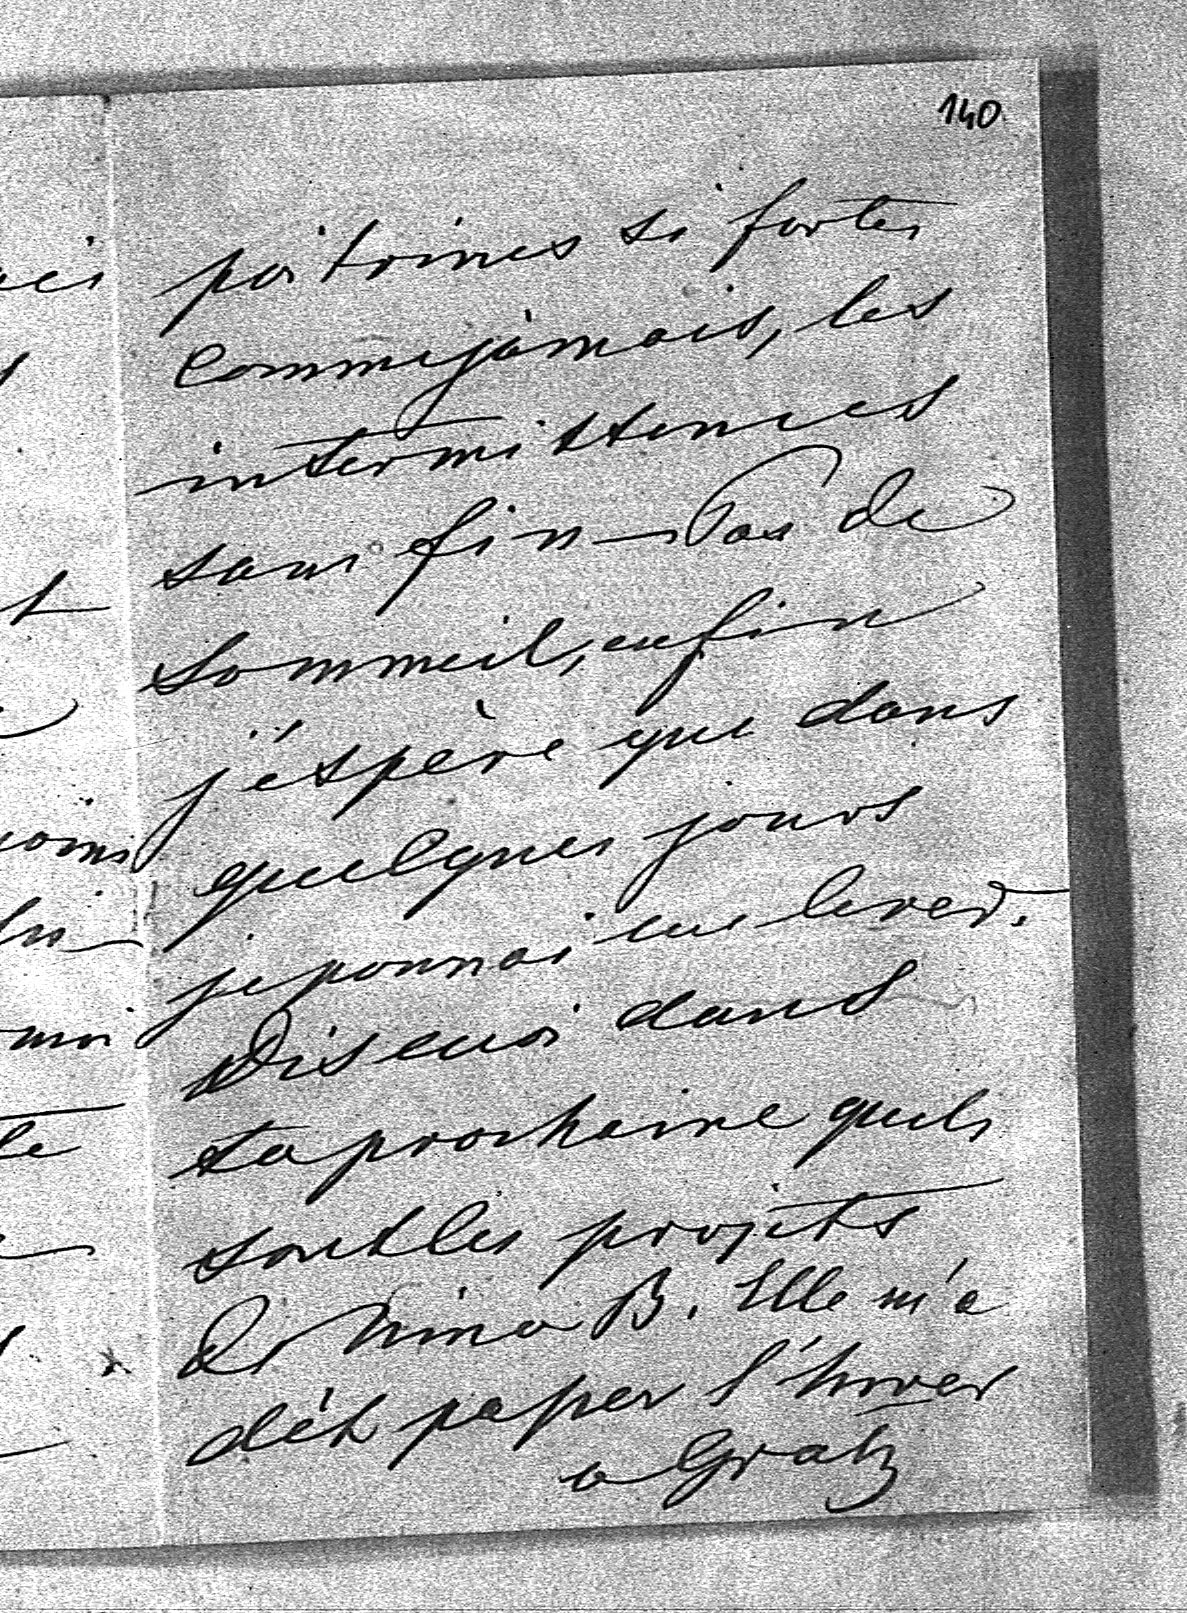 140
poitrines si fortes
comme jamais, les
intermittences
sans fin — Pas de
sommeil, enfin
j'éspère que dans
quelques jours
je pourrai me lever.
Dis moi dans
ta prochaine quels
sont les projets
de Nina B. Elle m'a
dét passer l'hiver
a Gratz